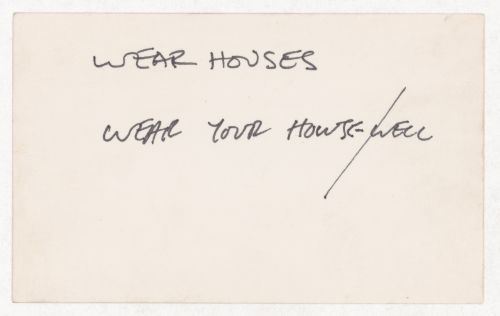 WEAR HOUSES
WEAR YOUR HOUSE WELL